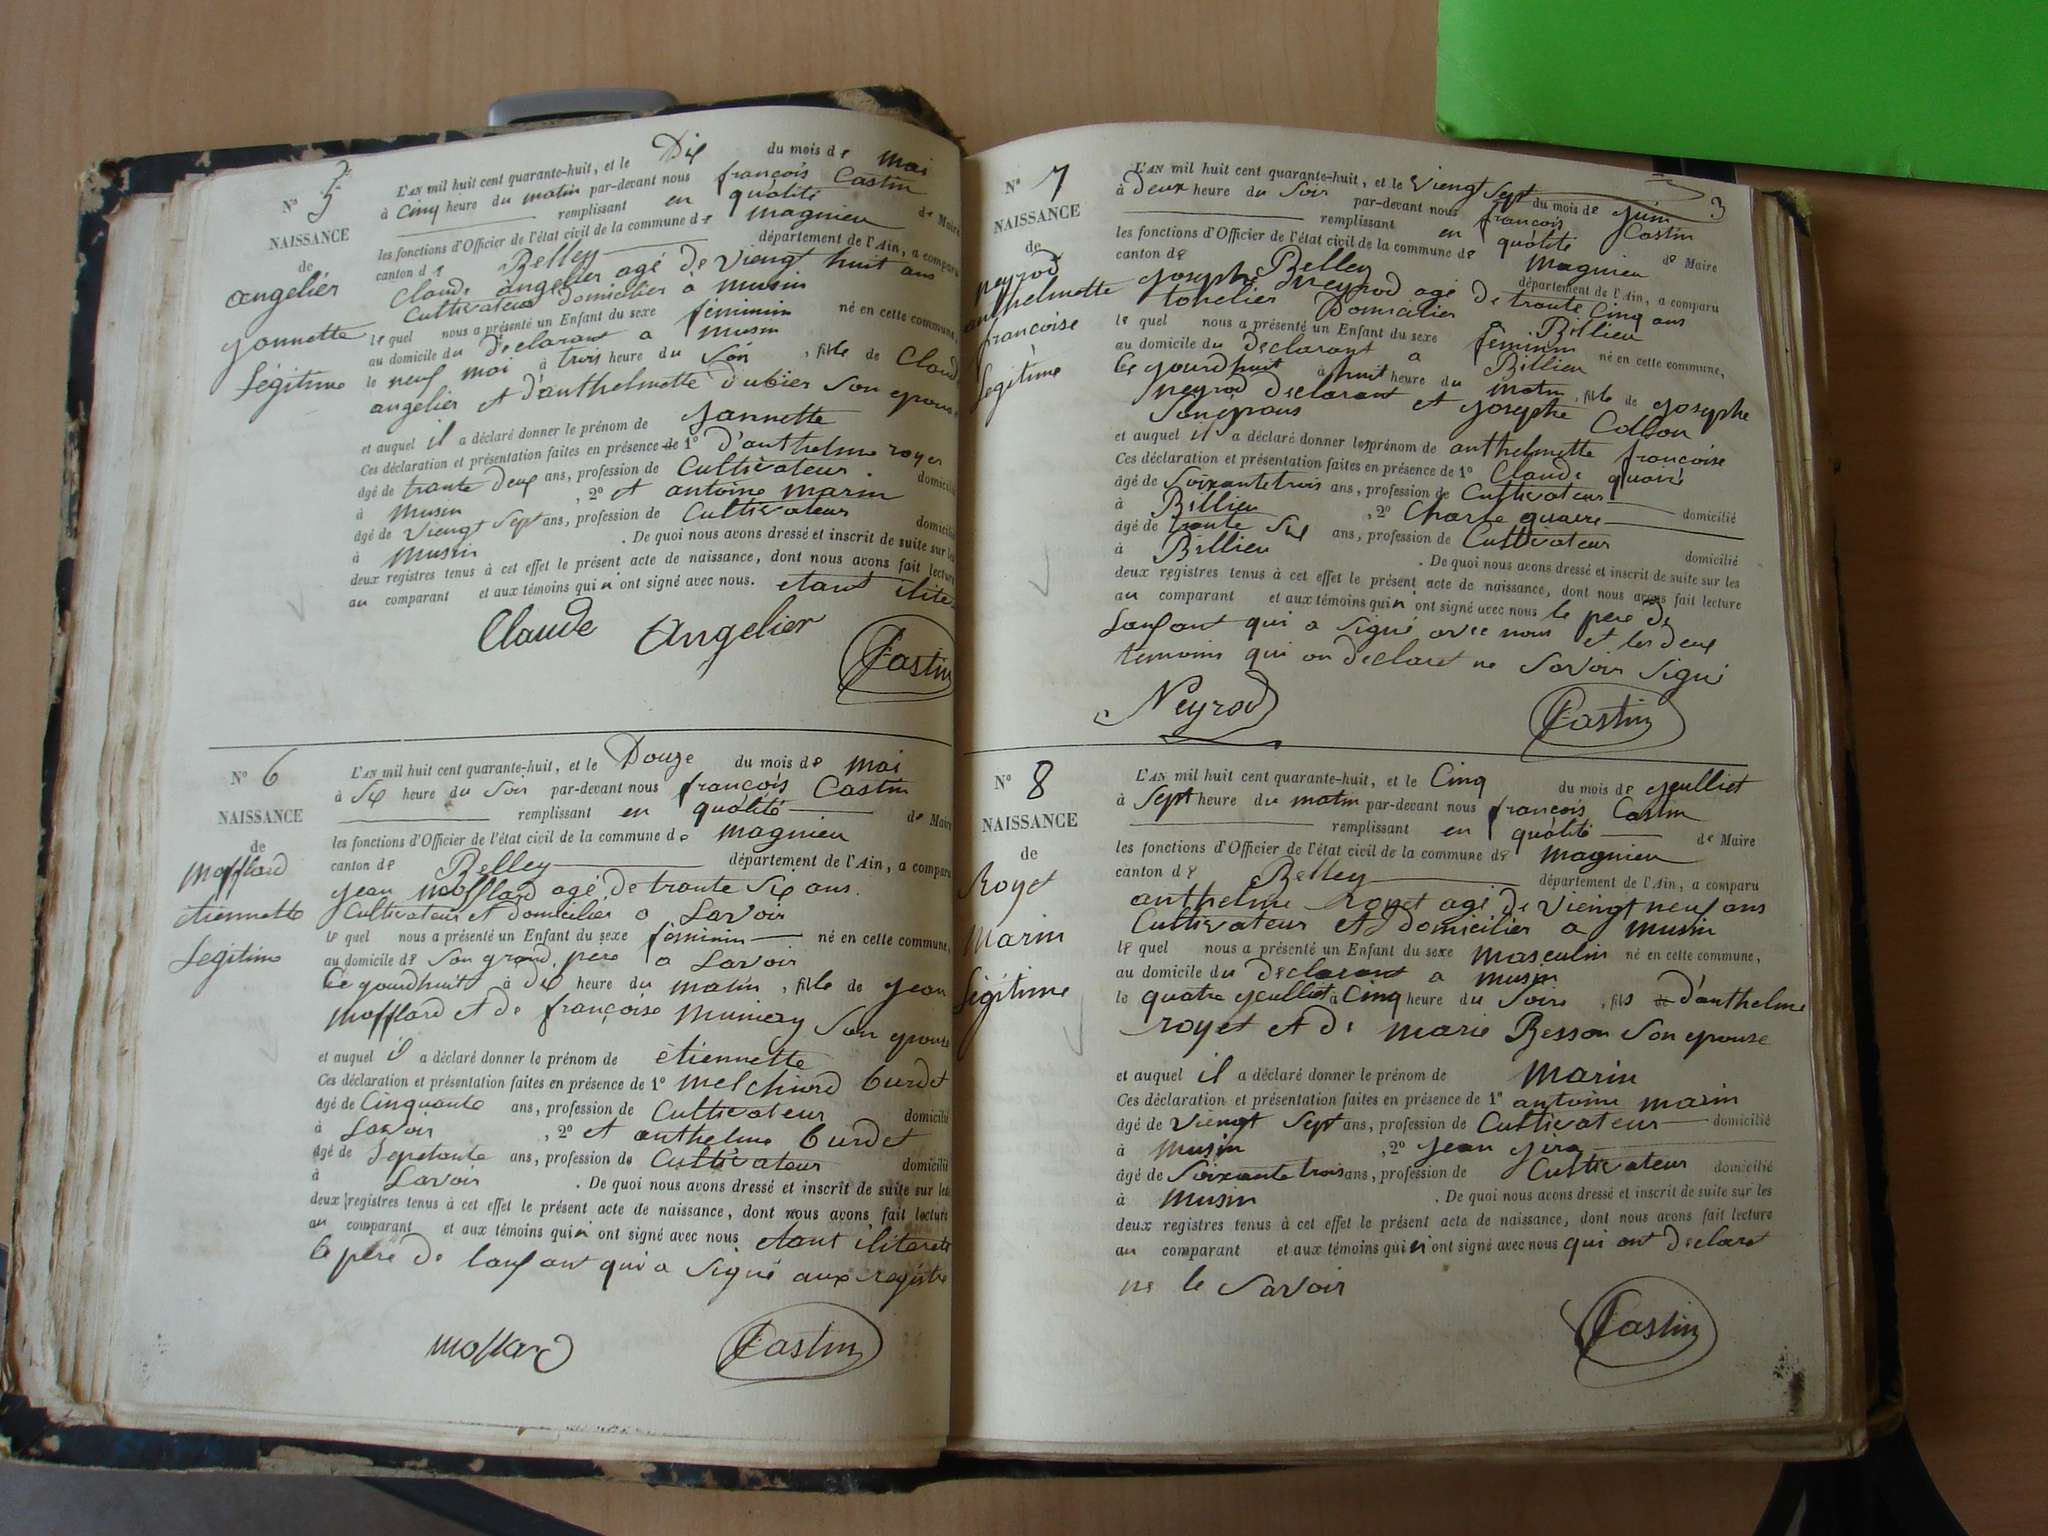 N° 5
NAISSANCE
de
angelier
jannette
Légitime
L'AN mil huit cent quarante-huit, et le Dix du mois de mai
à Cinq heure du matin par-devant nous françois Castin
remplissant en qualité de Maire
les fonctions d'Officier de l'état civil de la commune de magnieu
canton de Belley département de l'Ain, a comparu
Claude angelier agé de viengt huit ans
Cultivateur domicilier à musin
le quel nous a présenté un Enfant du sexe féminim né en cette commune,
au domicile du déclarant a musin
le neuf mai à trois heure du Soir, fille de Claude
angelier et d'anthelmette dubier Son epouse
et auquel il a déclaré donner le prénom de Jannette
Ces déclaration et présentation faites en présence de 1° d'anthelme royer
âgé de trante deux ans, profession de Cultivateur domicilié
à musin, 2° et antoine marin
âgé de viengt Sept ans, profession de Cultivateur domicilié
à musin. De quoi nous avons dressé et inscrit de suite sur les
deux registres tenus à cet effet le présent acte de naissance, dont nous avons fait lecture
au comparant et aux témoins qui n'ont signé avec nous. etant
Claude Angelier
Castin
N° 6
NAISSANCE
de
mofflard
etiennette
Légitime
L'AN mil huit cent quarante-huit, et le Douze du mois de mai
à Six heure du Soir par-devant nous françois Castin
remplissant en qualité de Maire
les fonctions d'Officier de l'état civil de la commune de magnieu
canton de Belley département de l'Ain, a comparu
jean mofflard agé de trante Six ans.
Cultivateur et domicilier a Lavoir
le quel nous a présenté un Enfant du sexe féminin né en cette commune,
au domicile de Son grand pere a Lavoir
Ce jourdhuit à dix heure du matin, fille de jean
mofflard et de françoise Son epouse
et auquel il a déclaré donner le prénom de étiennette
Ces déclaration et présentation faites en présence de 1° melchiord burdet
âgé de Cinquante ans, profession de Cultivateur domicilié
à Lavoir, 2° et anthelme burdet
âgé de Septante ans, profession de Cultivateur domicilié
à Lavoir. De quoi nous avons dressé et inscrit de suite sur les
deux registres tenus à cet effet le présent acte de naissance, dont nous avons fait lecture
au comparant et aux témoins qui n'ont signé avec nous etant
le pere de lanfant qui a Signé aux registre
moflard
Castin
3
N° 7
NAISSANCE
de
neyrod
anthelmette
françoise
Légitime
L'AN mil huit cent quarante-huit, et le Viengt Sept du mois de juin
à deux heure du Soir par-devant nous françois Castin
remplissant en qualité de Maire
les fonctions d'Officier de l'état civil de la commune de magnieu
canton de Belley département de l'Ain, a comparu
josephe neyrod agé de trante Cinq ans
tonelier Domicilier a Billieu
le quel nous a présenté un Enfant du sexe féminim né en cette commune,
au domicile du déclarant a Billieu
Ce jourdhuit à huit heure du matin, fille de josephe
neyrod déclarant et josephe
Son epouse
et auquel il a déclaré donner les prénom de anthelmette françoise
Ces déclaration et présentation faites en présence de 1° Claude
âgé de Soixante trois ans, profession de Cultivateur domicilié
à Billieu, 2° Charle
âgé de trante Six ans, profession de Cultivateur domicilié
à Billieu. De quoi nous avons dressé et inscrit de suite sur les
deux registres tenus à cet effet le présent acte de naissance, dont nous avons fait lecture
au comparant et aux témoins qui n'ont signé avec nous le pere de
Lanfant qui a Signé avec nous et les deux
temoins qui on declaret ne Savoir Signé
Neyrod
Castin
N° 8
NAISSANCE
de
Royet
Marin
Légitime
L'AN mil huit cent quarante-huit, et le Cinq du mois de jeulliet
à Sept heure du matin par-devant nous françois Castin
remplissant en qualité de Maire
les fonctions d'Officier de l'état civil de la commune de magnieu
canton de Belley département de l'Ain, a comparu
anthelme Royet agé de viengt neuf ans
Cultivateur et domicilier a musin
le quel nous a présenté un Enfant du sexe masculin né en cette commune,
au domicile du déclarant a musin
le quatre jeulliet à Cinq heure du Soire, fils d'anthelme
royet et de marie Besson Son epouse
et auquel il a déclaré donner le prénom de marin
Ces déclaration et présentation faites en présence de 1° antoine marin
âgé de Viengt Sept ans, profession de Cultivateur domicilié
à musin, 2° jean
âgé de Soixante trois ans, profession de Cultivateur domicilié
à musin. De quoi nous avons dressé et inscrit de suite sur les
deux registres tenus à cet effet le présent acte de naissance, dont nous avons fait lecture
au comparant et aux témoins qui n'ont signé avec nous qui ont declaret
ne le Savoir
Castin